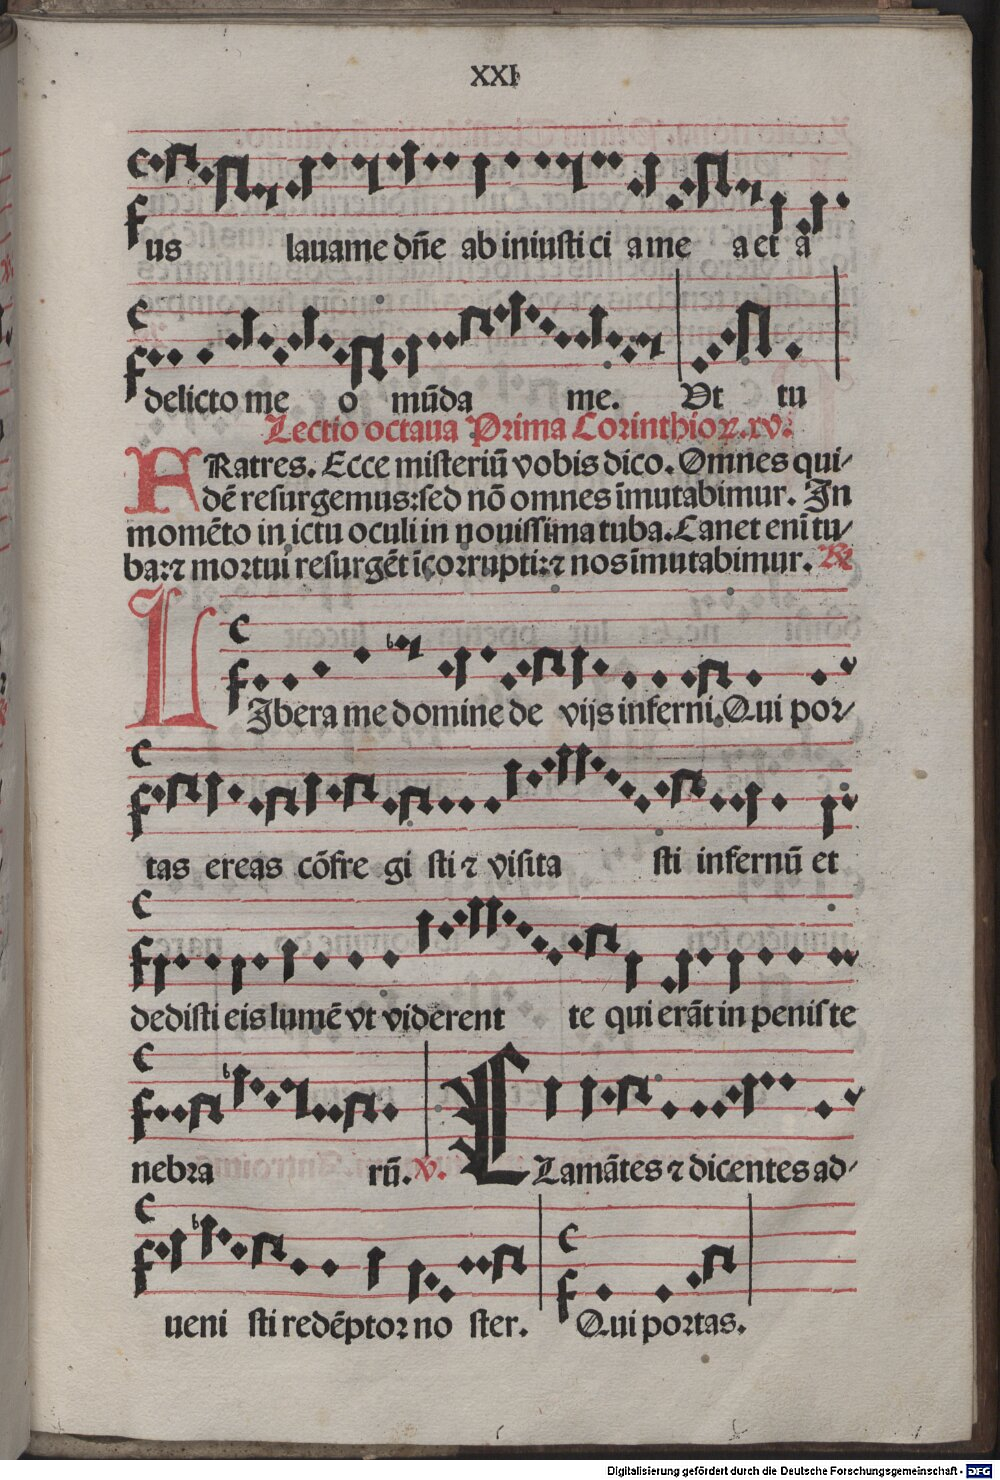 XXI
us lauame dn̄e ab iniusti ci a me a et a
delicto me o mūda me. Vt tu
Lectio octaua Prima Corinthioꝝ.xv.
FRatres. Ecce misteriū vobis dico. Omnes qui⸗
dē resurgemus:sed nō omnes īmutabimur. In
momēto in ictu oculi in nouissima tuba. Canet enī tu⸗
ba:⁊ mortui resurgēt īcorrupti:⁊ nos īmutabimur. ℟
LIbera me domine de vijs inferni. Qui por⸗
tas ereas cōfre gi sti ⁊ visita sti infernū et
dedisti eis lumē vt viderent te qui erāt in penis te
nebra rū. V. CLamātes ⁊ dicentes ad⸗
ueni sti redēptor no ster. Qui portas.
Digitalisierung gefördert durch die Deutsche Forschungsgemeinschaft - DFG